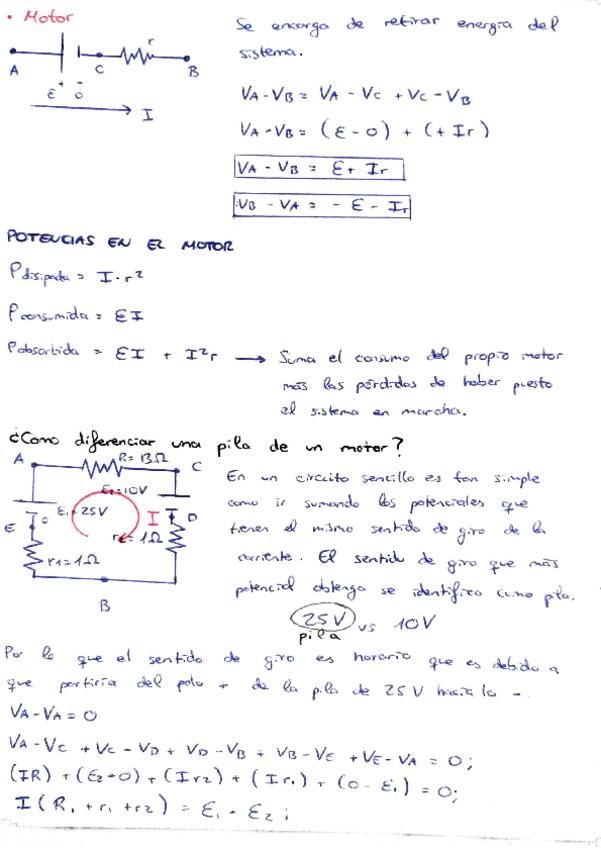 • Motor
Se encarga de retirar energía del
sistema.
r
A
C
B
ε + - 0
I
VA - VB = VA - VC + VC - VB
VA - VB = (ε - 0) + (+ Ir)
VA - VB = ε + Ir
VB - VA = - ε - Ir
POTENCIAS EN EL MOTOR
Pdisipada = I · r²
Pconsumida = εI
Pabsorbida = εI + I²r → Suma el consumo del propio motor
más las pérdidas de haber puesto
el sistema en marcha.
¿Como diferenciar una pila de un motor?
A
R = 13Ω
C
ε2 = 10V
ε1 = 25V
I
D
E
0
r2 = 1Ω
r1 = 1Ω
B
En un circuito sencillo es tan simple
como ir sumando los potenciales que
tienen el mismo sentido de giro de la
corriente. El sentido de giro que más
potencial obtenga se identifica como pila.
25V vs 10V
pila
Por lo que el sentido de giro es horario que es debido a
que partiría del polo + de la pila de 25V hacia la -.
VA - VA = 0
VA - VC + VC - VD + VD - VB + VB - VE + VE - VA = 0;
(IR) + (ε2 - 0) + (Ir2) + (Ir1) + (0 - ε1) = 0;
I(R1 + r1 + r2) = ε1 - ε2;